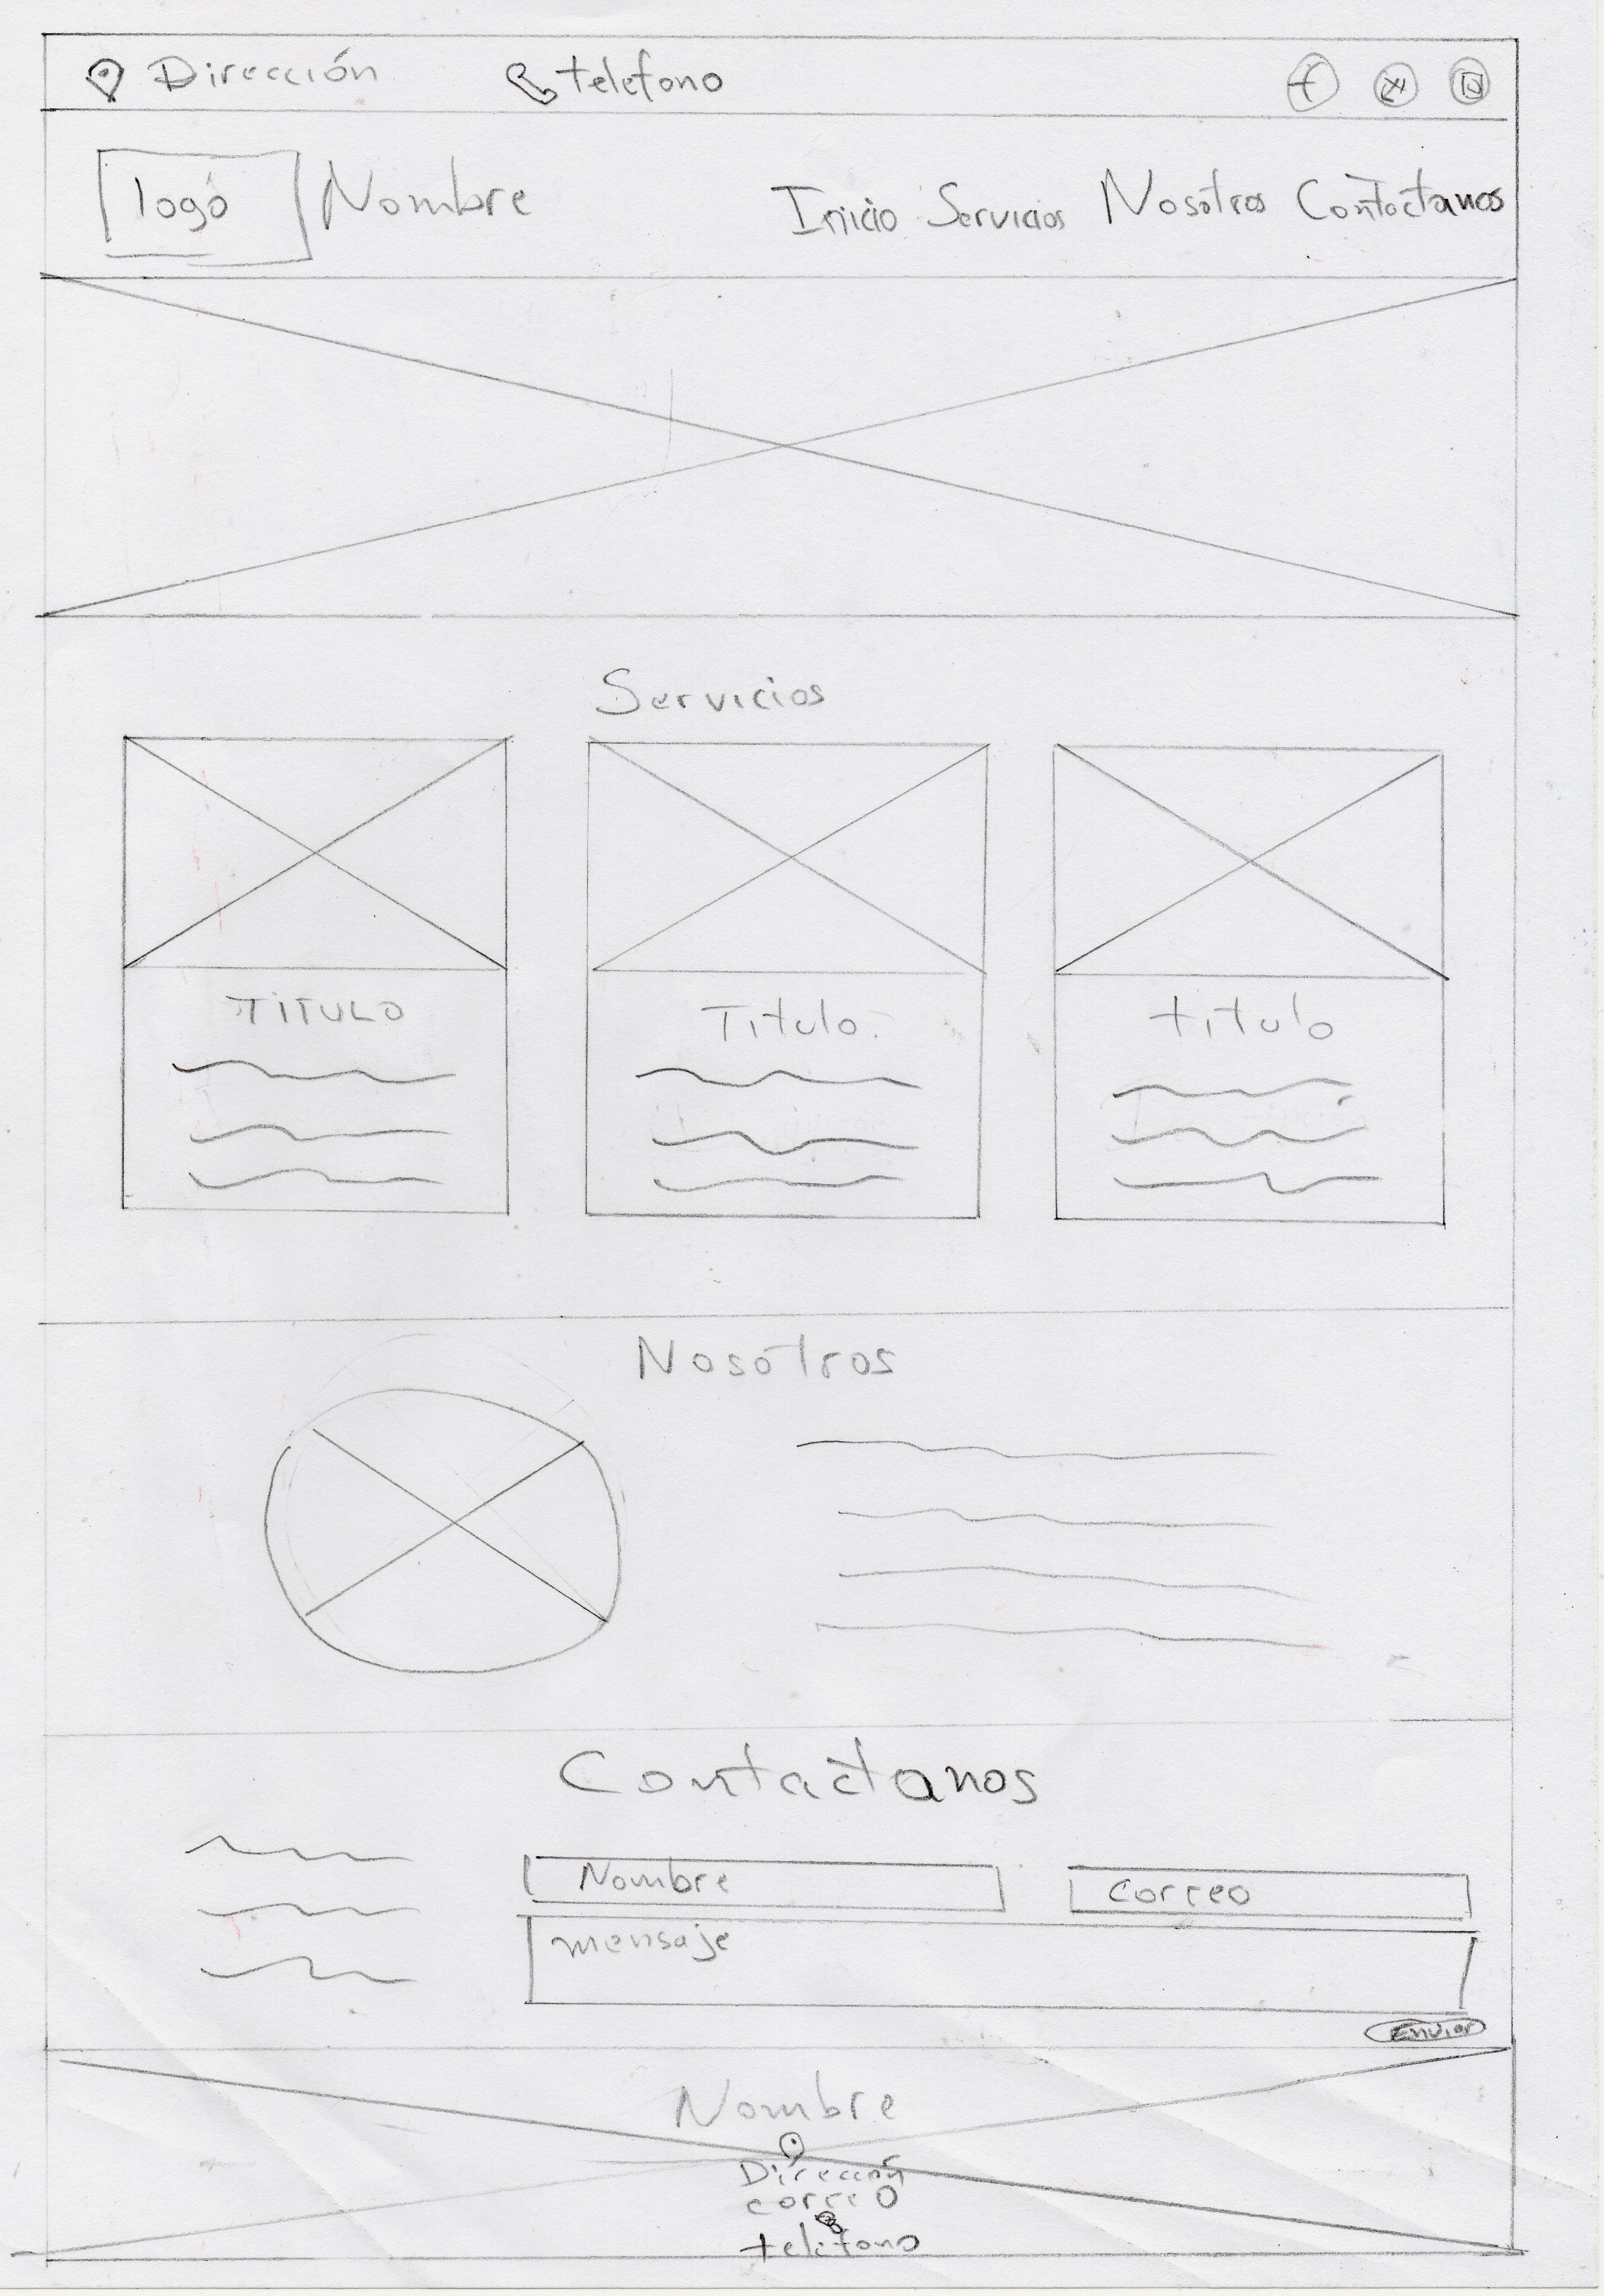 Dirección telefono
logo Nombre Inicio Servicios Nosotros Contactanos
Servicios
TITULO Titulo. titulo
Nosotros
Contactanos
Nombre Correo
mensaje
Enviar
Nombre
Dirección
correo
telefono